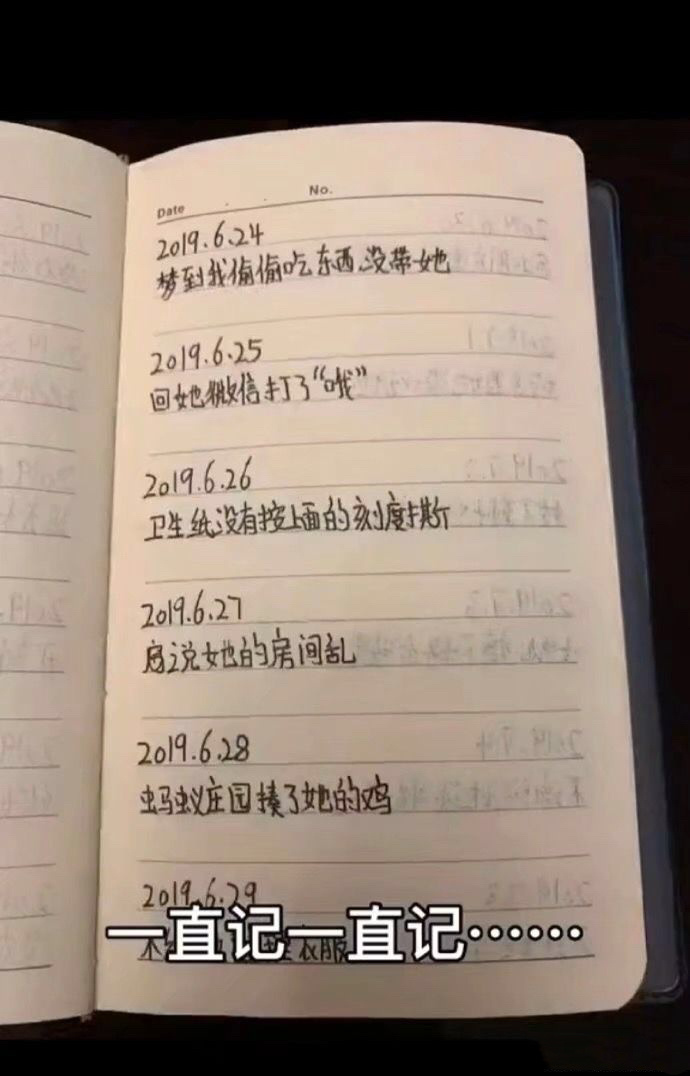 Date
No.
2019.6.24
梦到我偷偷吃东西、没带她
2019.6.25
回她微信打了“哦”
2019.6.26
卫生纸没有按上面的刻度撕
2019.6.27
说她的房间乱
2019.6.28
蚂蚁庄园揍了她的鸡
2019.6.29
一直记一直记……
衣服